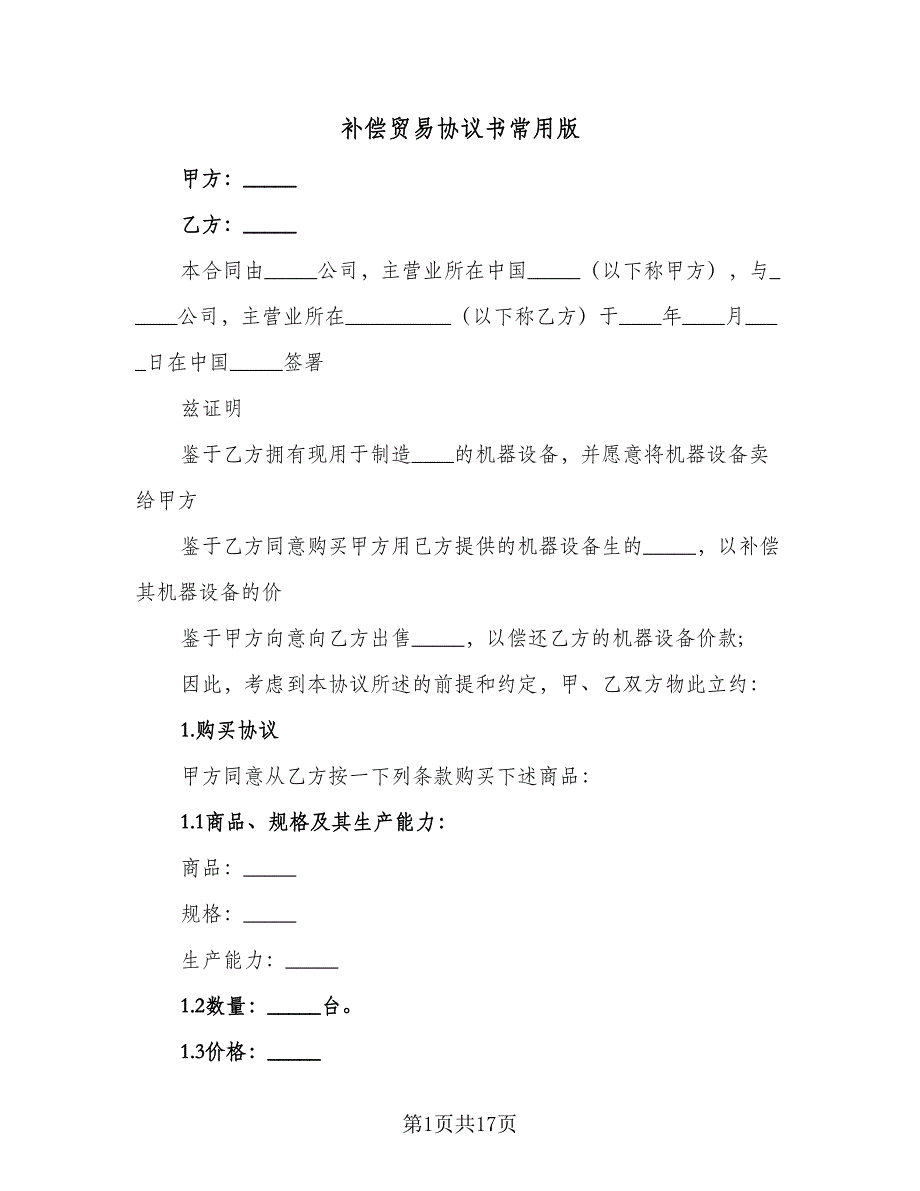 补偿贸易协议书常用版
甲方：_____
乙方：_____
本合同由_____公司，主营业所在中国_____（以下称甲方），与_
____公司，主营业所在__________（以下称乙方）于____年____月___
_日在中国_____签署
兹证明
鉴于乙方拥有现用于制造____的机器设备，并愿意将机器设备卖
给甲方
鉴于乙方同意购买甲方用己方提供的机器设备生的_____，以补偿
其机器设备的价
鉴于甲方向意向乙方出售_____，以偿还乙方的机器设备价款;
因此，考虑到本协议所述的前提和约定，甲、乙双方物此立约：
1.购买协议
甲方同意从乙方按一下列条款购买下述商品：
1.1商品、规格及其生产能力：
商品：_____
规格：_____
生产能力：_____
1.2数量：_____台。
1.3价格：_____
第1页共17页